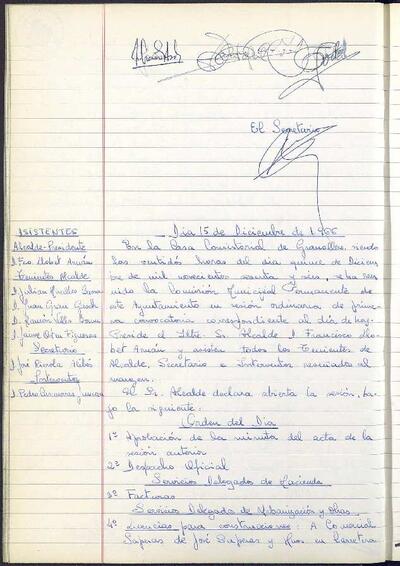 El Secretario
ASISTENTES
Alcalde-Presidente
D. Fco Llobet Arnán
Tenientes Alcalde
D. Julian
D. Juan Grau
D. Ramón Vella
D. Jaime Oña Figueras
Secretario
D. José
Interventor
D. Pedro
Dia 15 de Diciembre de 1.966
En la Casa Consistorial de Granollers, siendo
las veintidós horas del dia quince de Diciem
bre de mil novecientos sesenta y seis, se ha reu
nido la Comisión Municipal Permanente de
este Ayuntamiento en sesión ordinaria de prime-
ra convocatoria correspondiente al dia de hoy.
Preside el Iltre. Sr. Alcalde D. Francisco Llo-
bet Arnán y asisten todos los Tenientes de
Alcalde, Secretario e Interventor reseñados al
margen.
El Sr. Alcalde declara abierta la sesión, ba-
jo la siguiente:
Orden del Dia
1º Aprobación de la minuta del acta de la
sesión anterior
2º Despacho Oficial
Servicios Delegados de Hacienda
3º Facturas
Servicios Delegados de Urbanización y Obras
4º Licencias para construcciones: A Comercial
Sapnas de José Sapnas y Hnos en Carretera